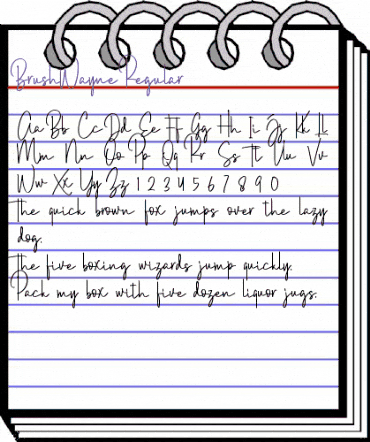 BrushWayne Regular
Aa Bb Cc Dd Ee Ff Gg Hh Ii Jj Kk Ll
Mm Nn Oo Pp Qq Rr Ss Tt Uu Vv
Ww Xx Yy Zz 1 2 3 4 5 6 7 8 9 0
The quick brown fox jumps over the lazy
dog.
The five boxing wizards jump quickly.
Pack my box with five dozen liquor jugs.